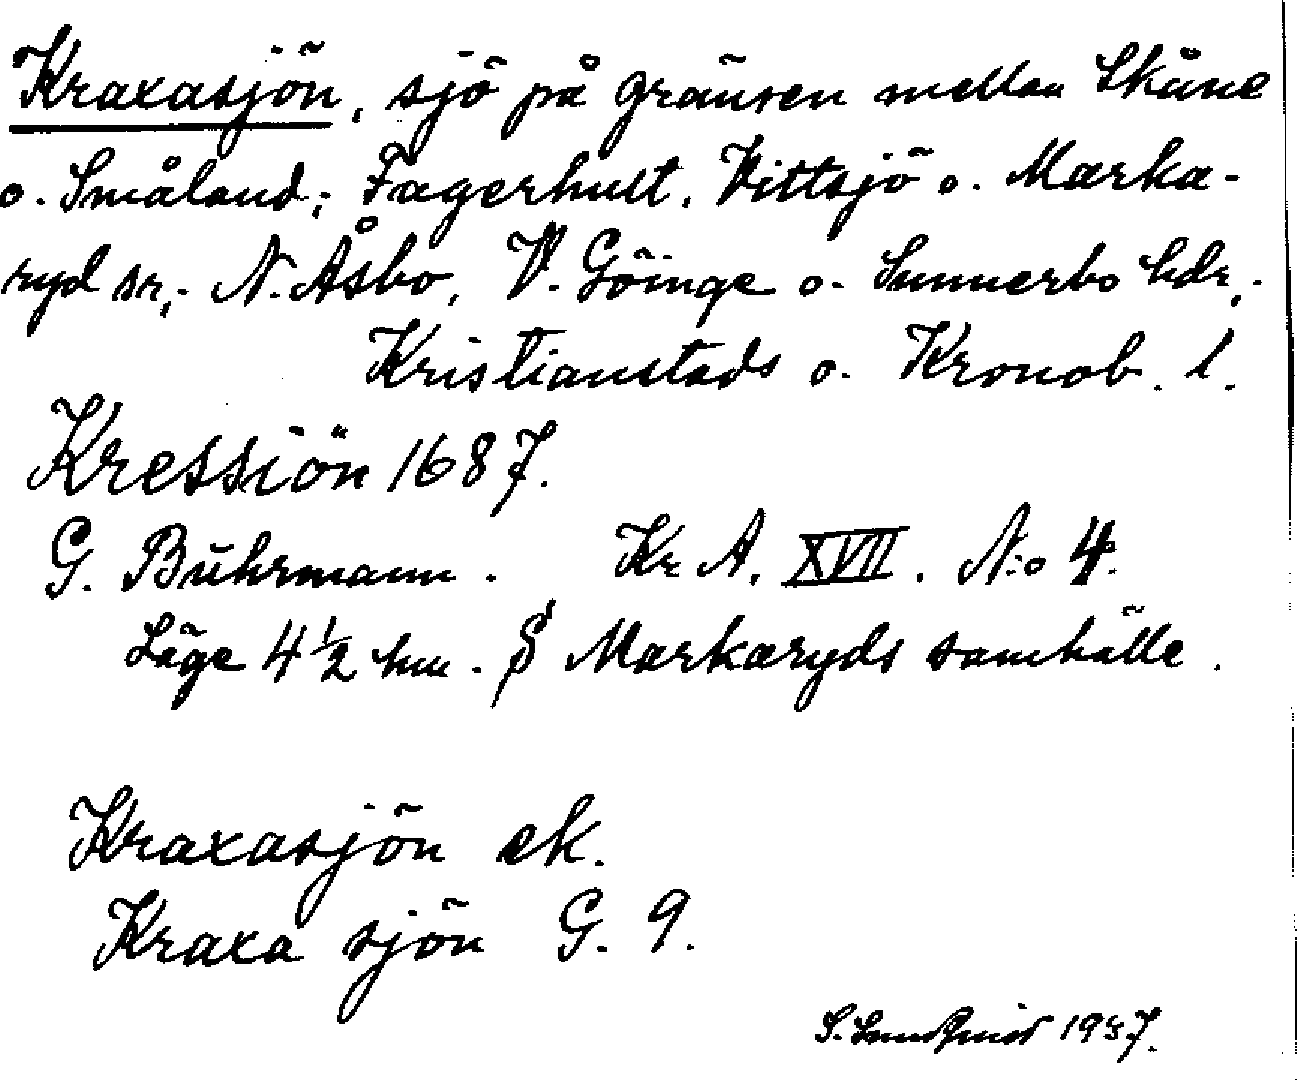 Kraxasjön, sjö på gränsen mellan Skåne
o. Småland; Fagerhult, Vittsjö o. Marka-
ryd sr,. N. Åsbo, V. Göinge o. Sunnerbo hdr,.
Kristianstads o. Kronob. l.
Kressiön 1687.
G. Buhrmann. Kr A. XVII. N:o 4.
Läge 4 1/2 km. S Markaryds samhälle.
Kraxasjön ek.
Kraxa sjön G. 9.
S. 19 7.